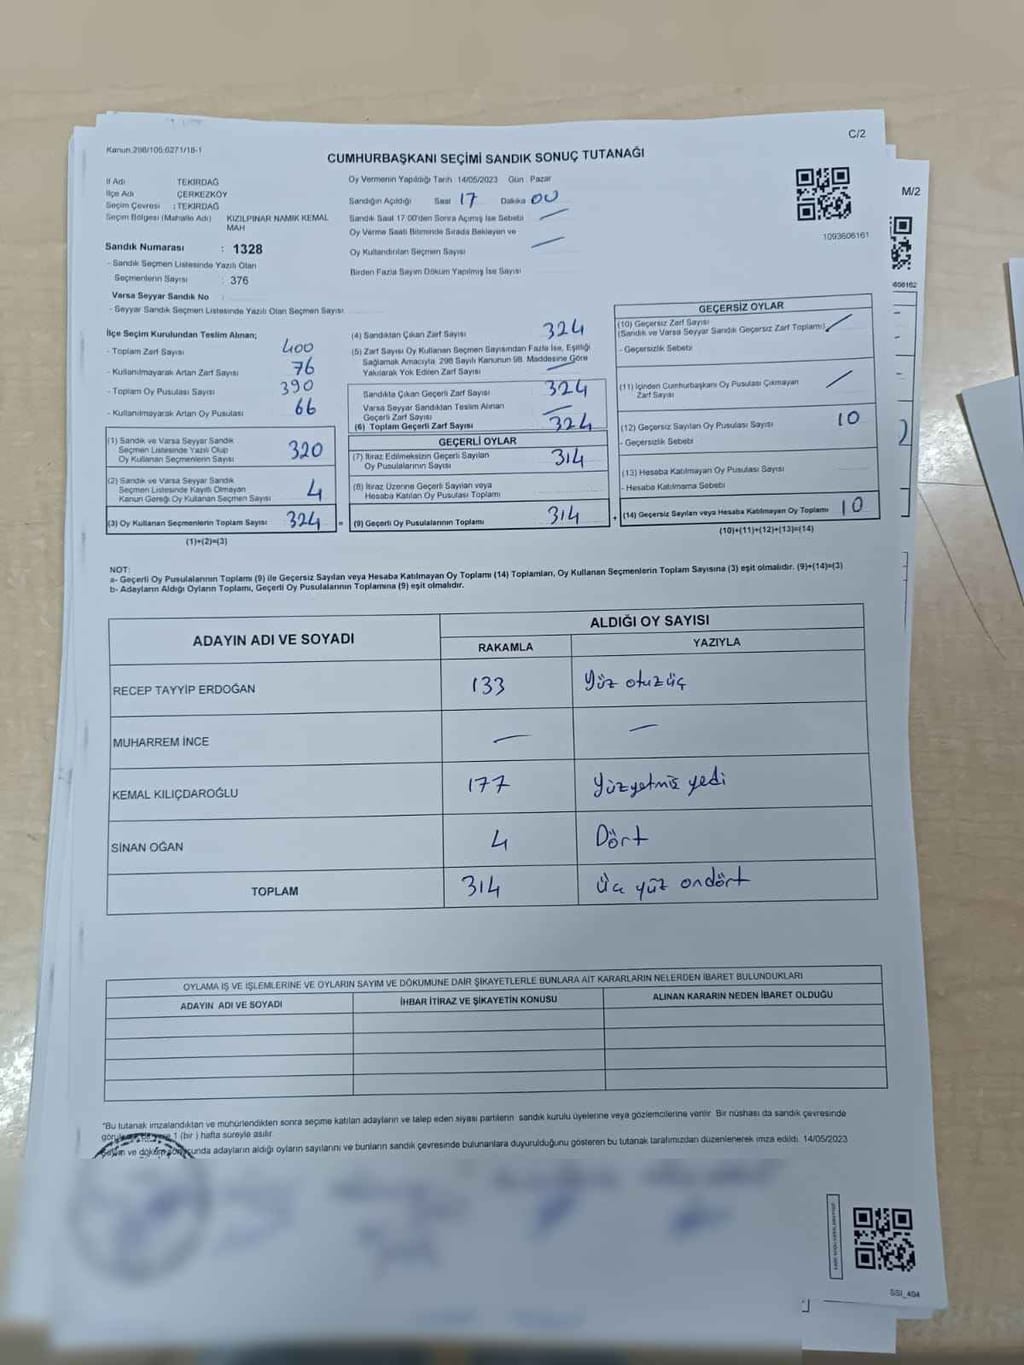 Kanun.298/105,6271/18-1
C/2
CUMHURBAŞKANI SEÇİMİ SANDIK SONUÇ TUTANAĞI
M/2
İl Adı TEKİRDAĞ
İlçe Adı ÇERKEZKÖY
Seçim Çevresi : TEKİRDAĞ
Seçim Bölgesi (Mahalle Adı) KIZILPINAR NAMIK KEMAL MAH
Sandık Numarası : 1328
- Sandık Seçmen Listesinde Yazılı Olan
Seçmenlerin Sayısı : 376
Varsa Seyyar Sandık No
- Seyyar Sandık Seçmen Listesinde Yazılı Olan Seçmen Sayısı
Oy Vermenin Yapıldığı Tarih : 14/05/2023 Gün : Pazar
Sandığın Açıldığı Saat 17 Dakika 00
Sandık Saat 17:00'den Sonra Açılmış İse Sebebi —
Oy Verme Saati Bitiminde Sırada Bekleyen ve
Oy Kullandırılan Seçmen Sayısı —
Birden Fazla Sayım Döküm Yapılmış İse Sayısı
1093606161
İlçe Seçim Kurulundan Teslim Alınan;
- Toplam Zarf Sayısı 400
- Kullanılmayarak Artan Zarf Sayısı 76
- Toplam Oy Pusulası Sayısı 390
- Kullanılmayarak Artan Oy Pusulası 66
(1) Sandık ve Varsa Seyyar Sandık
Seçmen Listesinde Yazılı Olup
Oy Kullanan Seçmenlerin Sayısı 320
(2) Sandık ve Varsa Seyyar Sandık
Seçmen Listesinde Kayıtlı Olmayan
Kanun Gereği Oy Kullanan Seçmen Sayısı 4
(3) Oy Kullanan Seçmenlerin Toplam Sayısı 324 =
(1)+(2)=(3)
(4) Sandıktan Çıkan Zarf Sayısı 324
(5) Zarf Sayısı Oy Kullanan Seçmen Sayısından Fazla İse, Eşitliği
Sağlamak Amacıyla, 298 Sayılı Kanunun 98. Maddesine Göre
Yakılarak Yok Edilen Zarf Sayısı —
Sandıkta Çıkan Geçerli Zarf Sayısı 324
Varsa Seyyar Sandıktan Teslim Alınan
Geçerli Zarf Sayısı —
(6) Toplam Geçerli Zarf Sayısı 324
GEÇERLİ OYLAR
(7) İtiraz Edilmeksizin Geçerli Sayılan
Oy Pusulalarının Sayısı 314
(8) İtiraz Üzerine Geçerli Sayılan veya
Hesaba Katılan Oy Pusulası Toplamı
(9) Geçerli Oy Pusulalarının Toplamı 314 +
GEÇERSİZ OYLAR
(10) Geçersiz Zarf Sayısı
(Sandık ve Varsa Seyyar Sandık Geçersiz Zarf Toplamı) —
- Geçersizlik Sebebi
(11) İçinden Cumhurbaşkanı Oy Pusulası Çıkmayan
Zarf Sayısı —
(12) Geçersiz Sayılan Oy Pusulası Sayısı 10
- Geçersizlik Sebebi
(13) Hesaba Katılmayan Oy Pusulası Sayısı
- Hesaba Katılmama Sebebi
(14) Geçersiz Sayılan veya Hesaba Katılmayan Oy Toplamı 10
(10)+(11)+(12)+(13)=(14)
NOT:
a- Geçerli Oy Pusulalarının Toplamı (9) ile Geçersiz Sayılan veya Hesaba Katılmayan Oy Toplamı (14) Toplamları, Oy Kullanan Seçmenlerin Toplam Sayısına (3) eşit olmalıdır. (9)+(14)=(3)
b- Adayların Aldığı Oyların Toplamı, Geçerli Oy Pusulalarının Toplamına (9) eşit olmalıdır.
ADAYIN ADI VE SOYADI ALDIĞI OY SAYISI
RAKAMLA YAZIYLA
RECEP TAYYİP ERDOĞAN 133 Yüz otuzüç
MUHARREM İNCE — —
KEMAL KILIÇDAROĞLU 177 Yüzyetmiş yedi
SİNAN OĞAN 4 Dört
TOPLAM 314 Üç yüz ondört
OYLAMA İŞ VE İŞLEMLERİNE VE OYLARIN SAYIM VE DÖKÜMÜNE DAİR ŞİKAYETLERLE BUNLARA AİT KARARLARIN NELERDEN İBARET BULUNDUKLARI
ADAYIN ADI VE SOYADI İHBAR İTİRAZ VE ŞİKAYETİN KONUSU ALINAN KARARIN NEDEN İBARET OLDUĞU
*Bu tutanak imzalandıktan ve mühürlendikten sonra seçime katılan adayların ve talep eden siyasi partilerin sandık kurulu üyelerine veya gözlemcilerine verilir. Bir nüshası da sandık çevresinde
1 (bir ) hafta süreyle asılır.
Sayım ve döküm sonucunda adayların aldığı oyların sayılarını ve bunların sandık çevresinde bulunanlara duyurulduğunu gösteren bu tutanak tarafımızdan düzenlenerek imza edildi. 14/05/2023
SSI_404